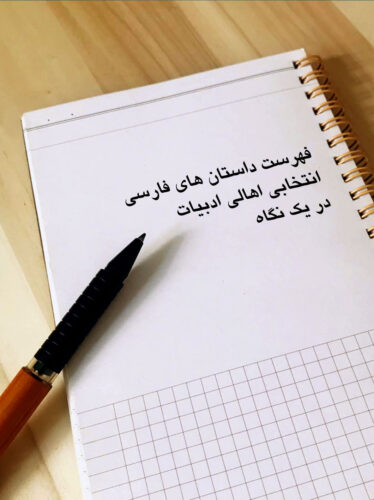 فهرست داستان های فارسی
انتخابی اهالی ادبیات
در یک نگاه